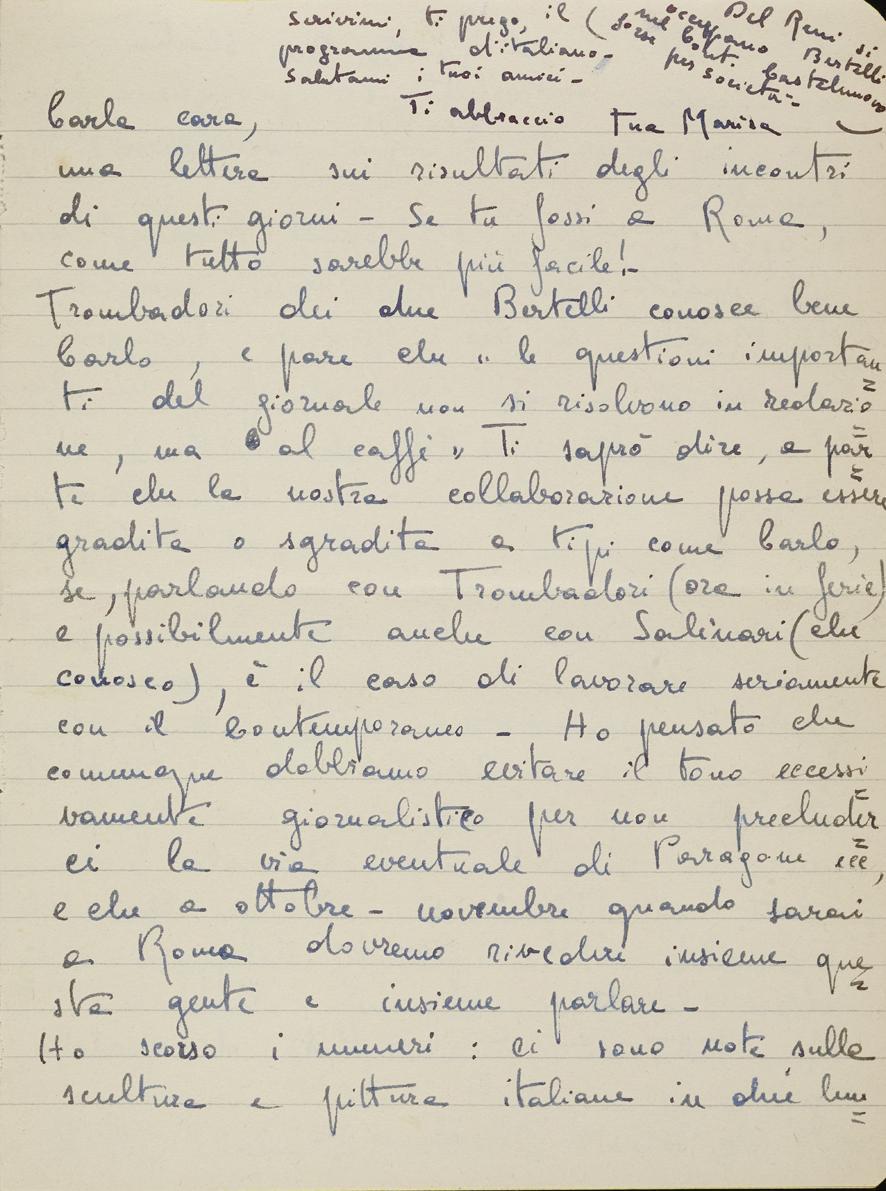 Scrivimi, ti prego, il
programma d'italiano -
Salutami i tuoi amici -
Ti abbraccio tua Marisa
(Del Reni si
occupano Bertelli
nel Cont. Castelnuovo
forse per
società - )
Carla cara,
una lettera sui risultati degli incontri
di questi giorni - Se tu fossi a Roma,
come tutto sarebbe più facile! -
Trombadori dei due Bertelli conosce bene
Carlo, e pare che " le questioni importan
ti del giornale non si risolvono in redazio
ne, ma al caffè " Ti saprò dire, a par
te che la nostra collaborazione possa essere
gradita o sgradita a tipi come Carlo,
se, parlando con Trombadori (ora in ferie)
e possibilmente anche con Salinari (che
conosco), è il caso di lavorare seriamente
con il Contemporaneo - Ho pensato che
comunque dobbiamo evitare il tono eccessi
vamente giornalistico per non precluder
ci la via eventuale di Paragone ecc,
e che a ottobre - novembre quando sarai
a Roma dovremo rivedere insieme que
sta gente e insieme parlare -
(Ho scorso i numeri : ci sono note sulla
scultura e pittura italiane in due